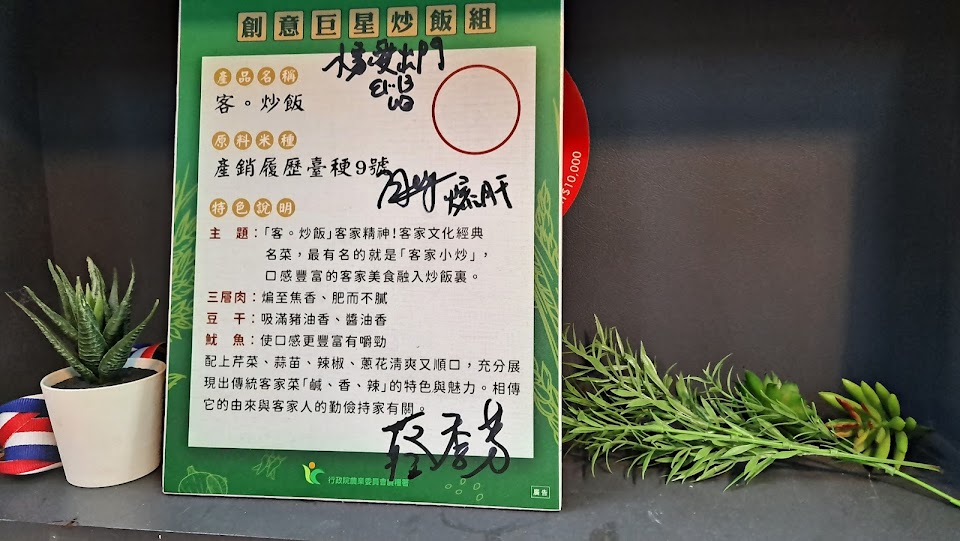 創意巨星炒飯組
產品名稱
客。炒飯
原料米種
產銷履歷臺稉9號
特色說明
主 題：「客。炒飯」客家精神!客家文化經典
名菜，最有名的就是「客家小炒」，
口感豐富的客家美食融入炒飯裏。
三層肉：煸至焦香、肥而不膩
豆 干：吸滿豬油香、醬油香
魷 魚：使口感更豐富有嚼勁
配上芹菜、蒜苗、辣椒、蔥花清爽又順口，充分展
現出傳統客家菜「鹹、香、辣」的特色與魅力。相傳
它的由來與客家人的勤儉持家有關。
行政院農業委員會農糧署
廣告
NT$10,000